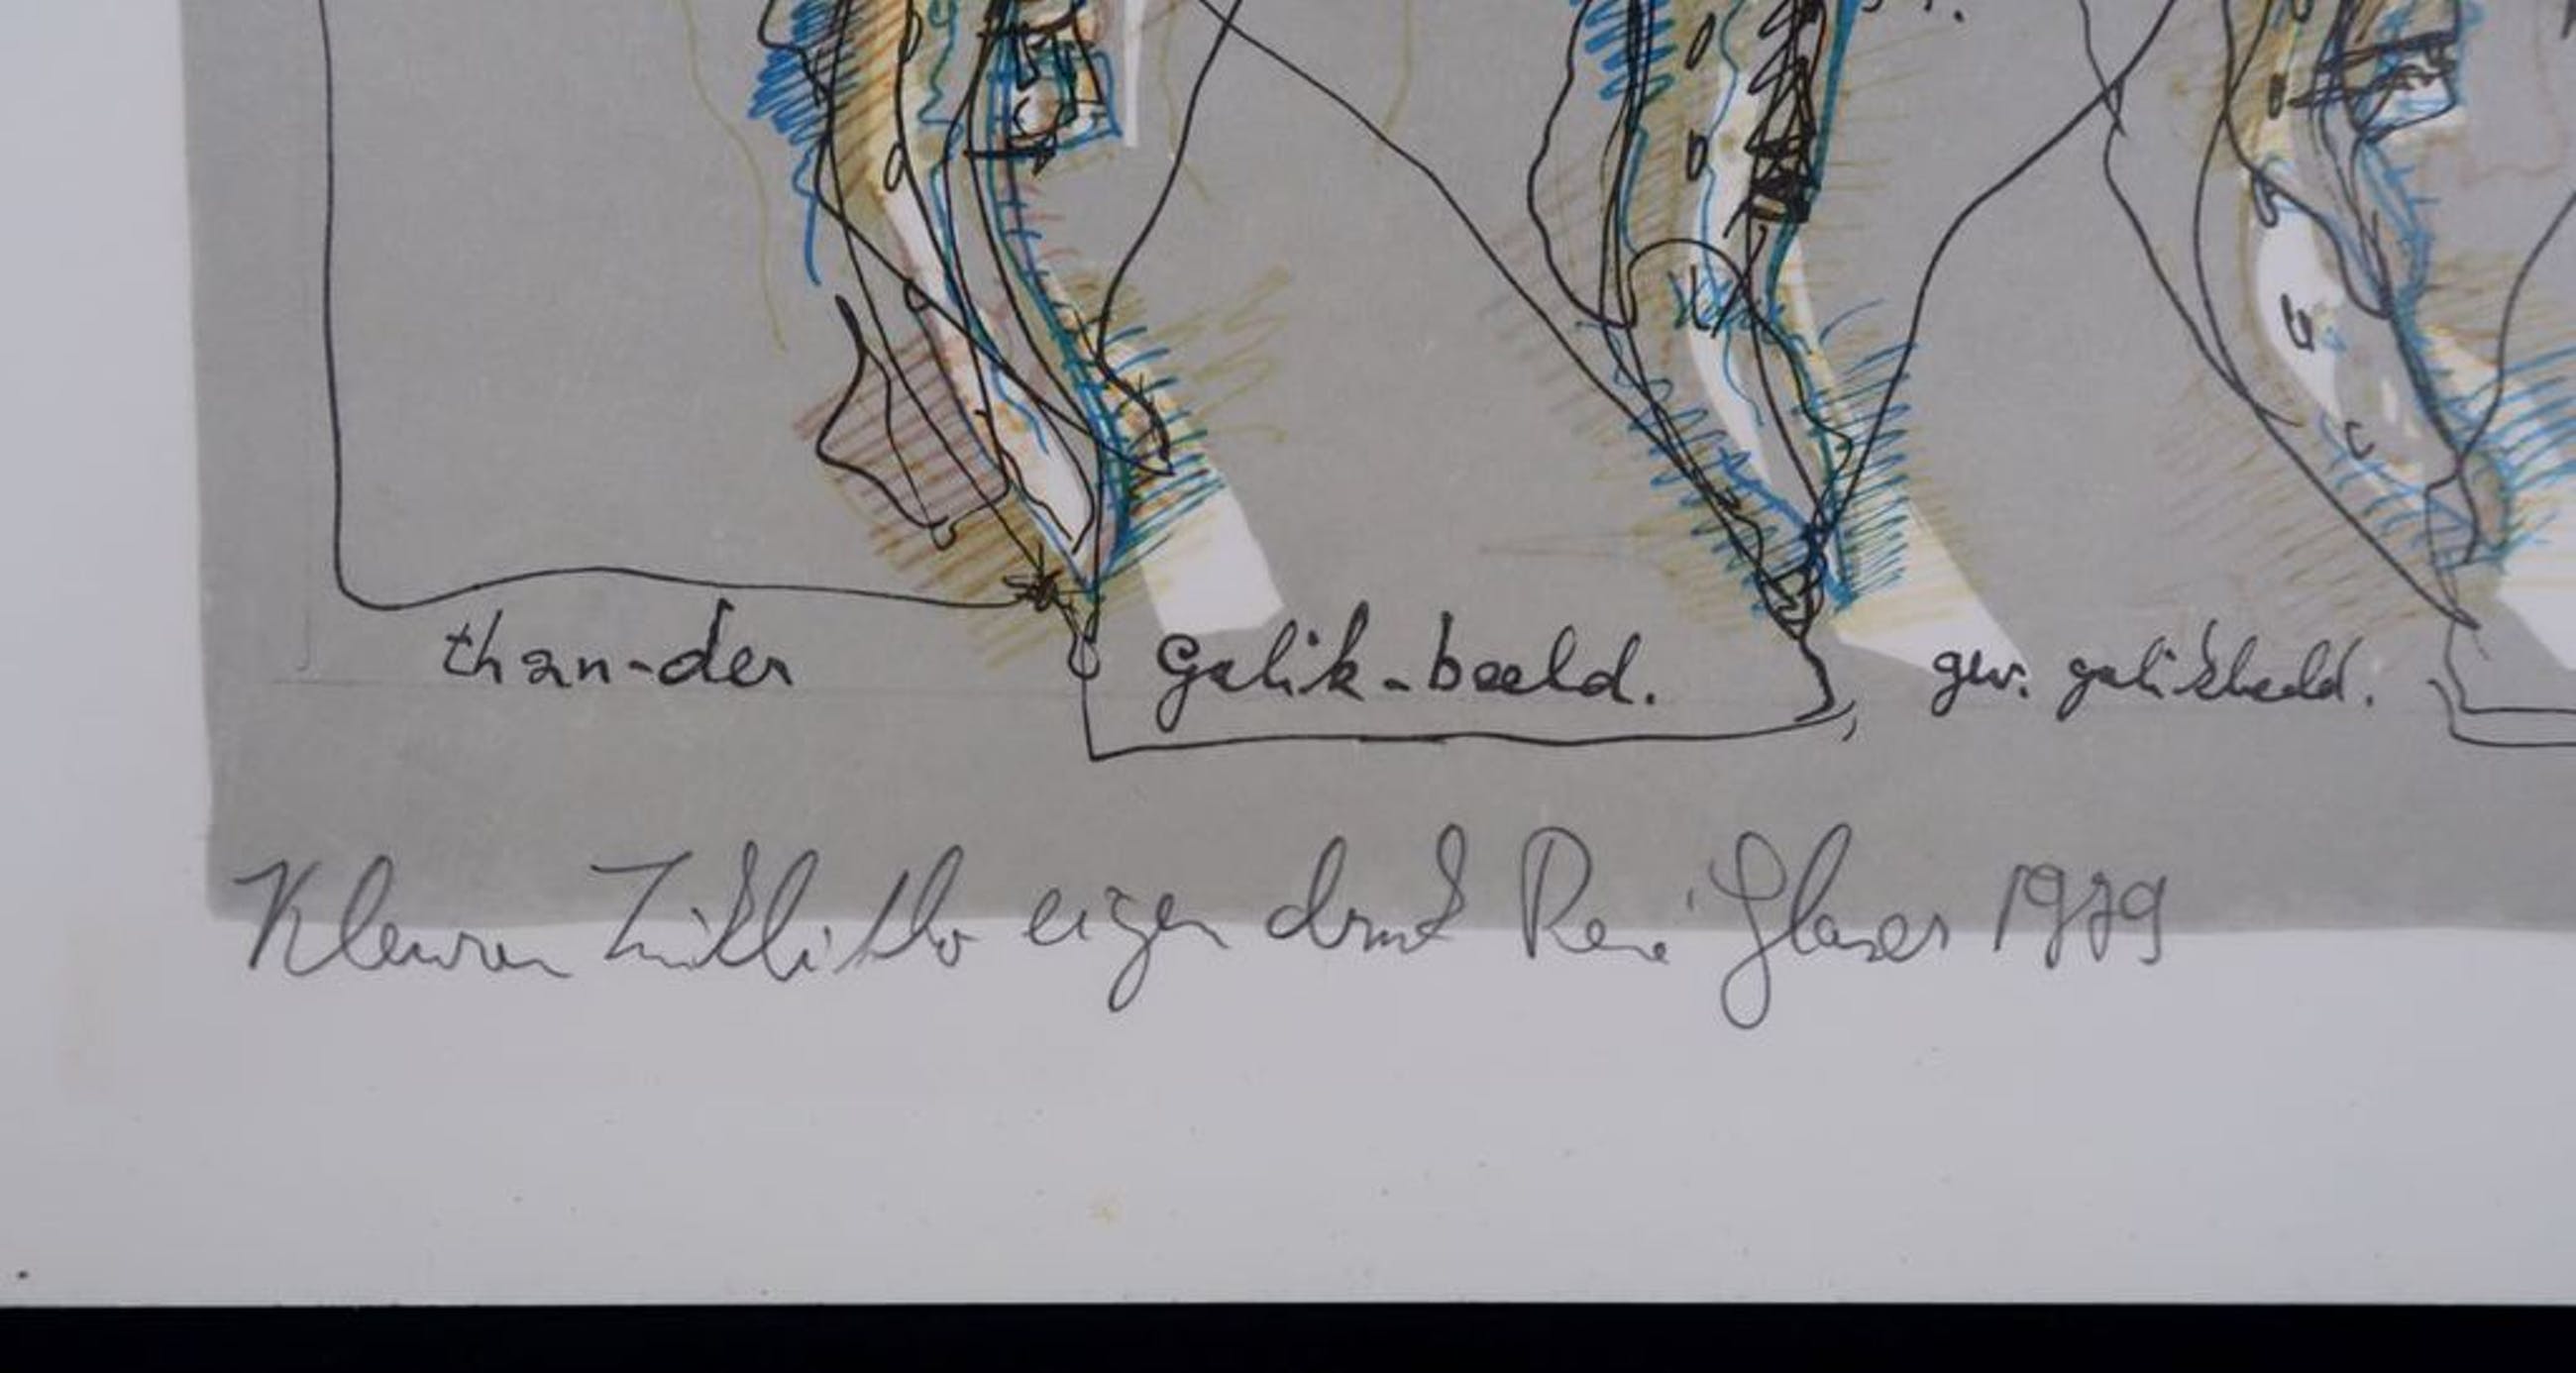 than-der
Galik-beeld.
gew. galikbeeld.
Kleuren Zinklitho eigen druk René Glaser 1979